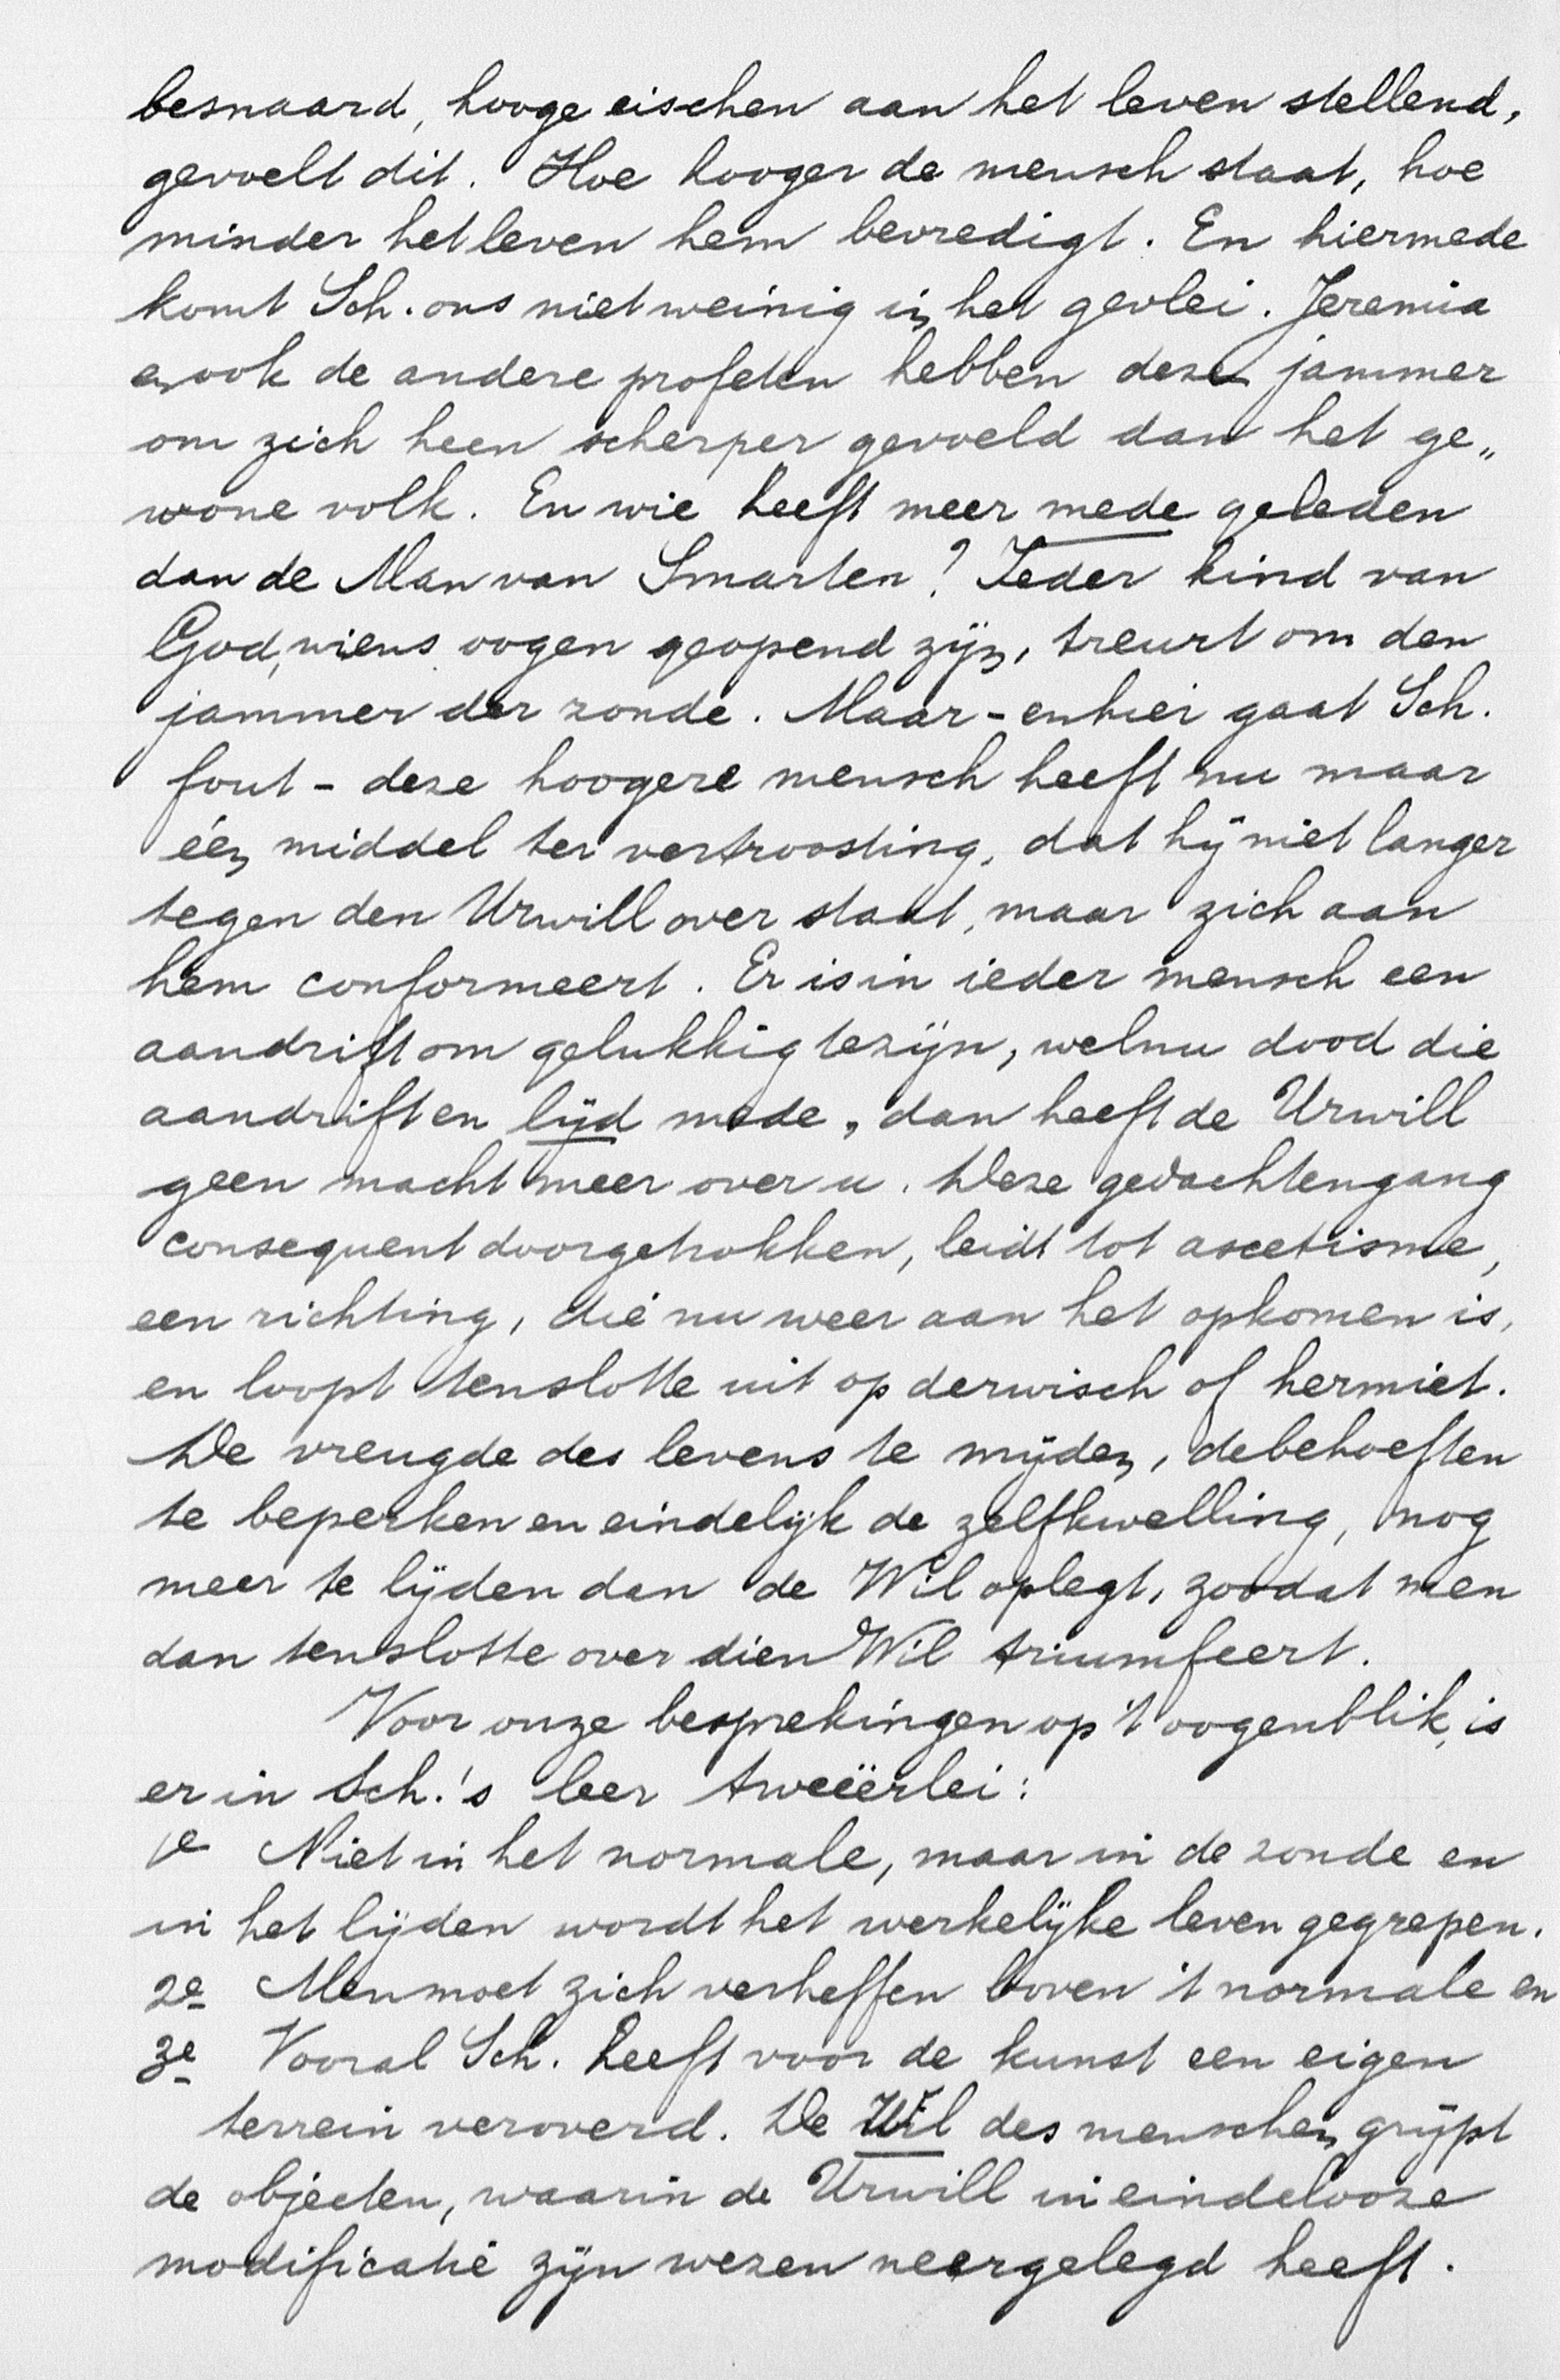 besnaard, hooge eischen aan het leven stellend,
gevoelt dit. Hoe hooger de mensch staat, hoe
minder het leven hem bevredigt. En hiermede
komt Sch. ons niet weinig in het gevlei. Jeremia
en ook de andere profeten hebben dezen jammer
om zich heen scherper gevoeld dan het ge„
wone volk. En wie heeft meer mede geleden
dan de Man van Smarten? Ieder kind van
God, wiens oogen geopend zijn, treurt om den
jammer der zonde. Maar - en hier gaat Sch.
fout - deze hoogere mensch heeft nu maar
één middel ter vertroosting, dat hij niet langer
tegen den Urwill over staat, maar zich aan
hem conformeert. Er is in ieder mensch een
aandrift om gelukkig te zijn, welnu dood die
aandrift en lijd mede, dan heeft de Urwill
geen macht meer over u. Deze gedachtengang
consequent doorgetrokken, leidt tot ascetisme,
een richting, die nu weer aan het opkomen is,
en loopt tenslotte uit op derwisch of hermiet.
De vreugde des levens te mijden, de behoeften
te beperken en eindelijk de zelfkwelling, nog
meer te lijden dan de Wil oplegt, zoodat men
dan tenslotte over dien Wil triumfeert.
Voor onze besprekingen op 't oogenblik, is
er in Sch.'s leer tweeërlei:
1e Niet in het normale, maar in de zonde en
in het lijden wordt het werkelijke leven gegrepen.
2e Men moet zich verheffen boven 't normale en
3e Vooral Sch. heeft voor de kunst een eigen
terrein veroverd. De Wil des menschen grijpt
de objecten, waarin de Urwill in eindelooze
modificatie zijn wezen neergelegd heeft.